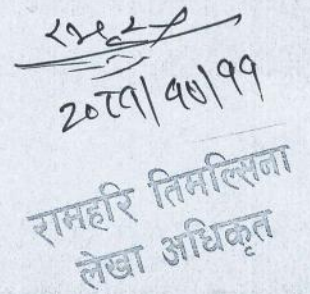 २०८१/१०/११
रामहरि तिमल्सिना
लेखा अधिकृत